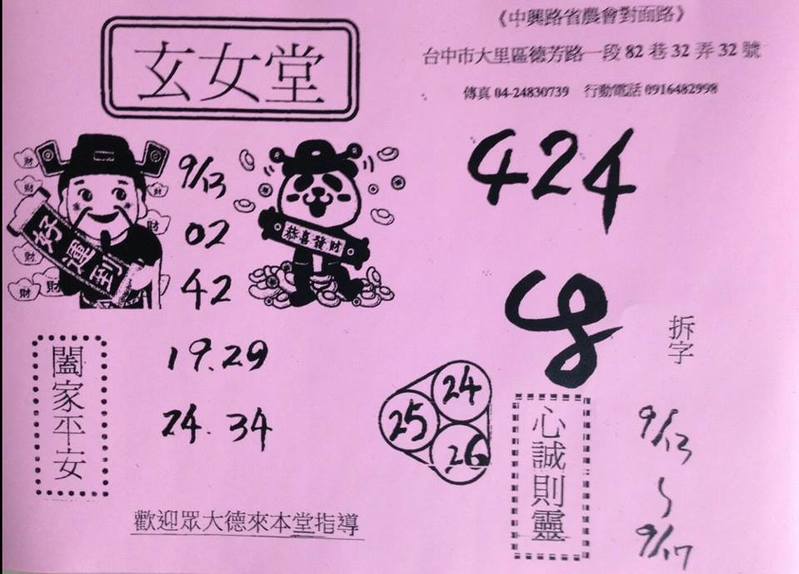 《中興路省農會對面路》
玄女堂
台中市大里區德芳路一段 82 巷 32 弄 32 號
傳真 04-24830739 行動電話 0916482998
424
財
財
財
財
財
財
財
9/13
02
42
好運到
恭喜發財
拆字
19.29
24.34
24
25
26
闔家平安
心誠則靈
9/13
~
9/17
歡迎眾大德來本堂指導